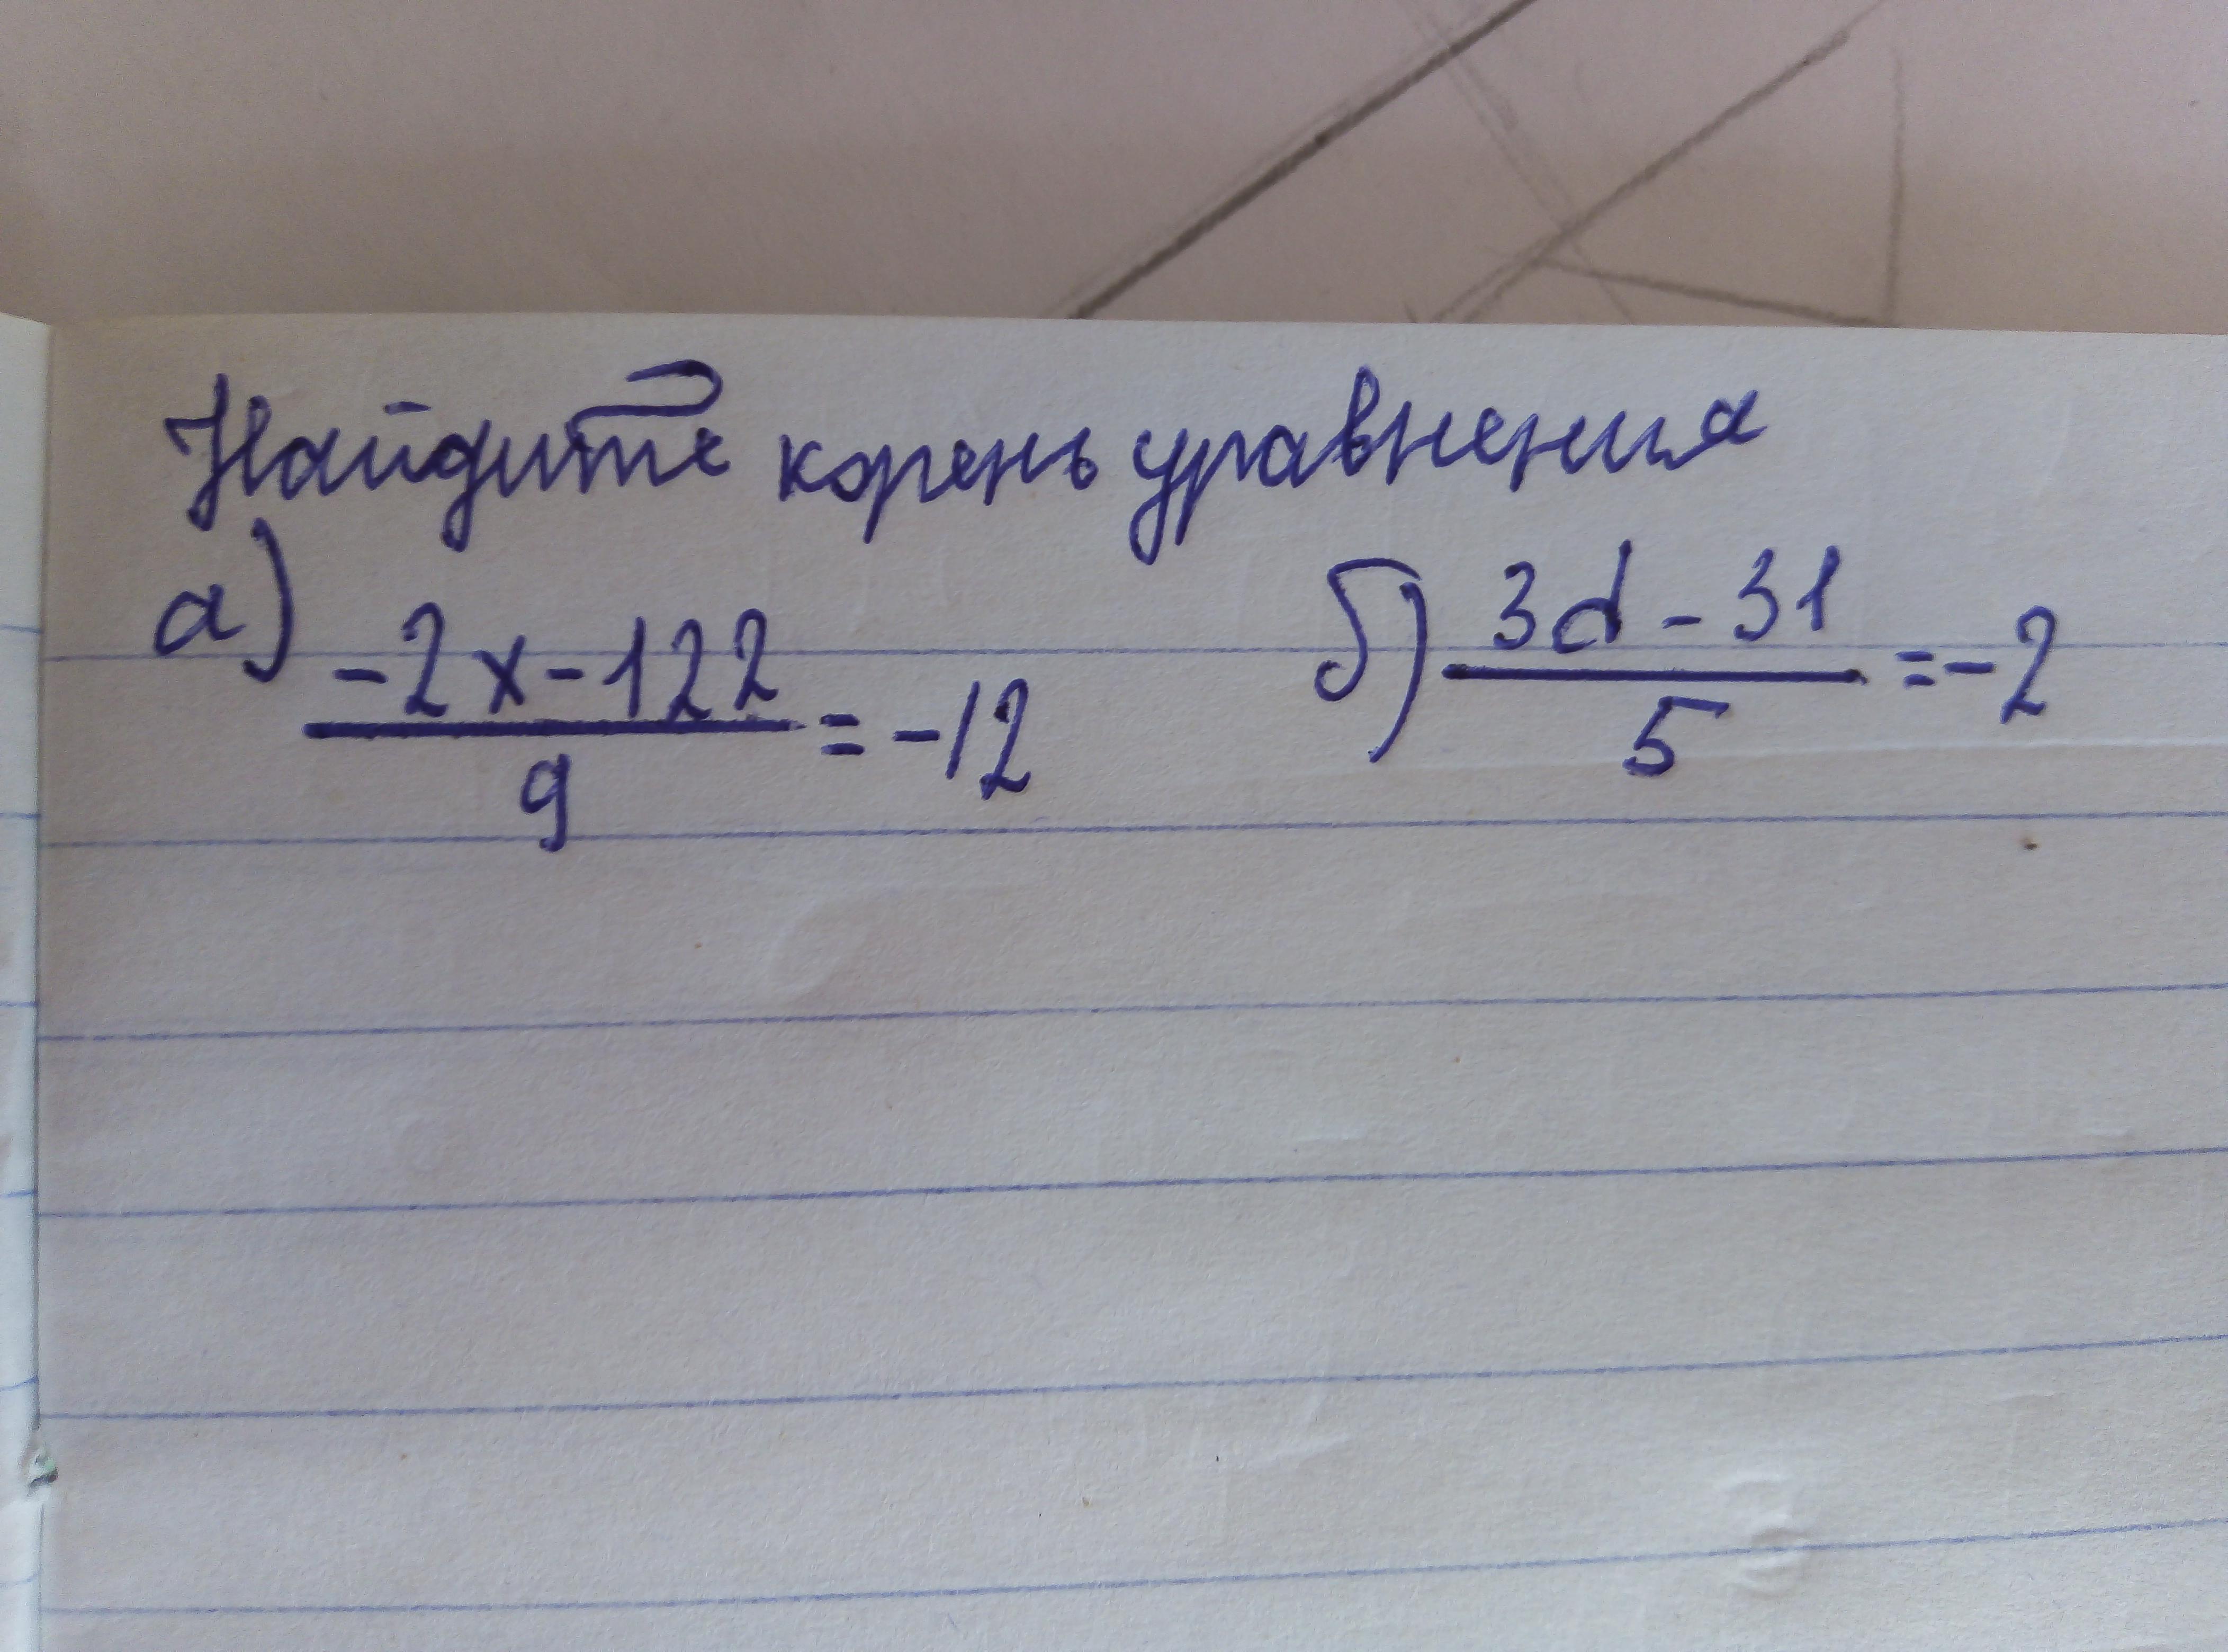 Найдите корень уравнения
а) -2x-122 / 9 = -12 б) 3d - 31 / 5 = -2